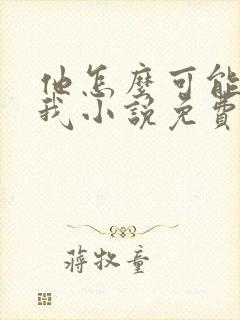 他怎麼可能
我小說免費
蔣牧童